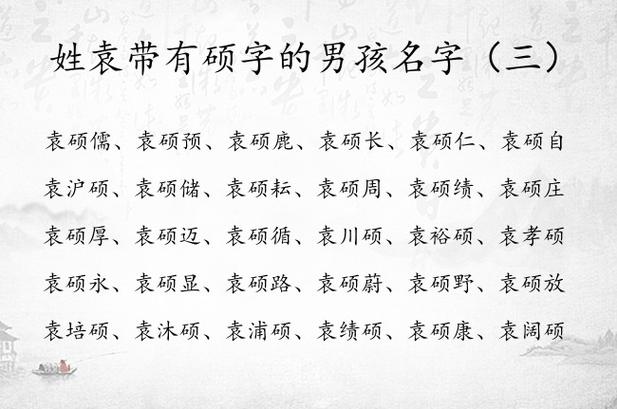 姓袁带有硕字的男孩名字（三）
袁硕儒、袁硕预、袁硕鹿、袁硕长、袁硕仁、袁硕自
袁沪硕、袁硕储、袁硕耘、袁硕周、袁硕绩、袁硕庄
袁硕厚、袁硕迈、袁硕循、袁川硕、袁裕硕、袁孝硕
袁硕永、袁硕显、袁硕路、袁硕蔚、袁硕野、袁硕放
袁培硕、袁沐硕、袁浦硕、袁绩硕、袁硕康、袁阔硕